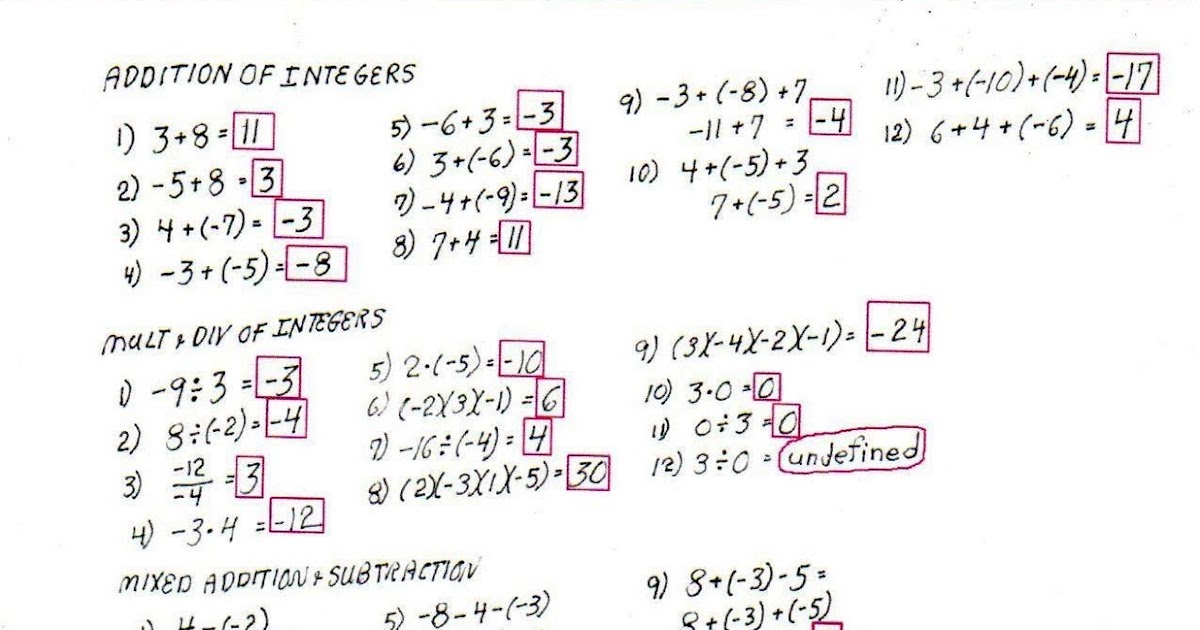 ADDITION OF INTEGERS
1) 3+8 = 11
2) -5+8 = 3
3) 4+(-7) = -3
4) -3+(-5) = -8
5) -6+3 = -3
6) 3+(-6) = -3
7) -4+(-9) = -13
8) 7+4 = 11
9) -3+(-8)+7
-11+7 = -4
10) 4+(-5)+3
7+(-5) = 2
11) -3+(-10)+(-4) = -17
12) 6+4+(-6) = 4
MULT & DIV OF INTEGERS
1) -9÷3 = -3
2) 8÷(-2) = -4
3) -12/-4 = 3
4) -3·4 = -12
5) 2·(-5) = -10
6) (-2)(3)(-1) = 6
7) -16÷(-4) = 4
8) (2)(-3)(1)(-5) = 30
9) (3)(-4)(-2)(-1) = -24
10) 3·0 = 0
11) 0÷3 = 0
12) 3÷0 = undefined
MIXED ADDITION & SUBTRACTION
1) 4-(-2)
5) -8-4-(-3)
9) 8+(-3)-5 =
8+(-3)+(-5)